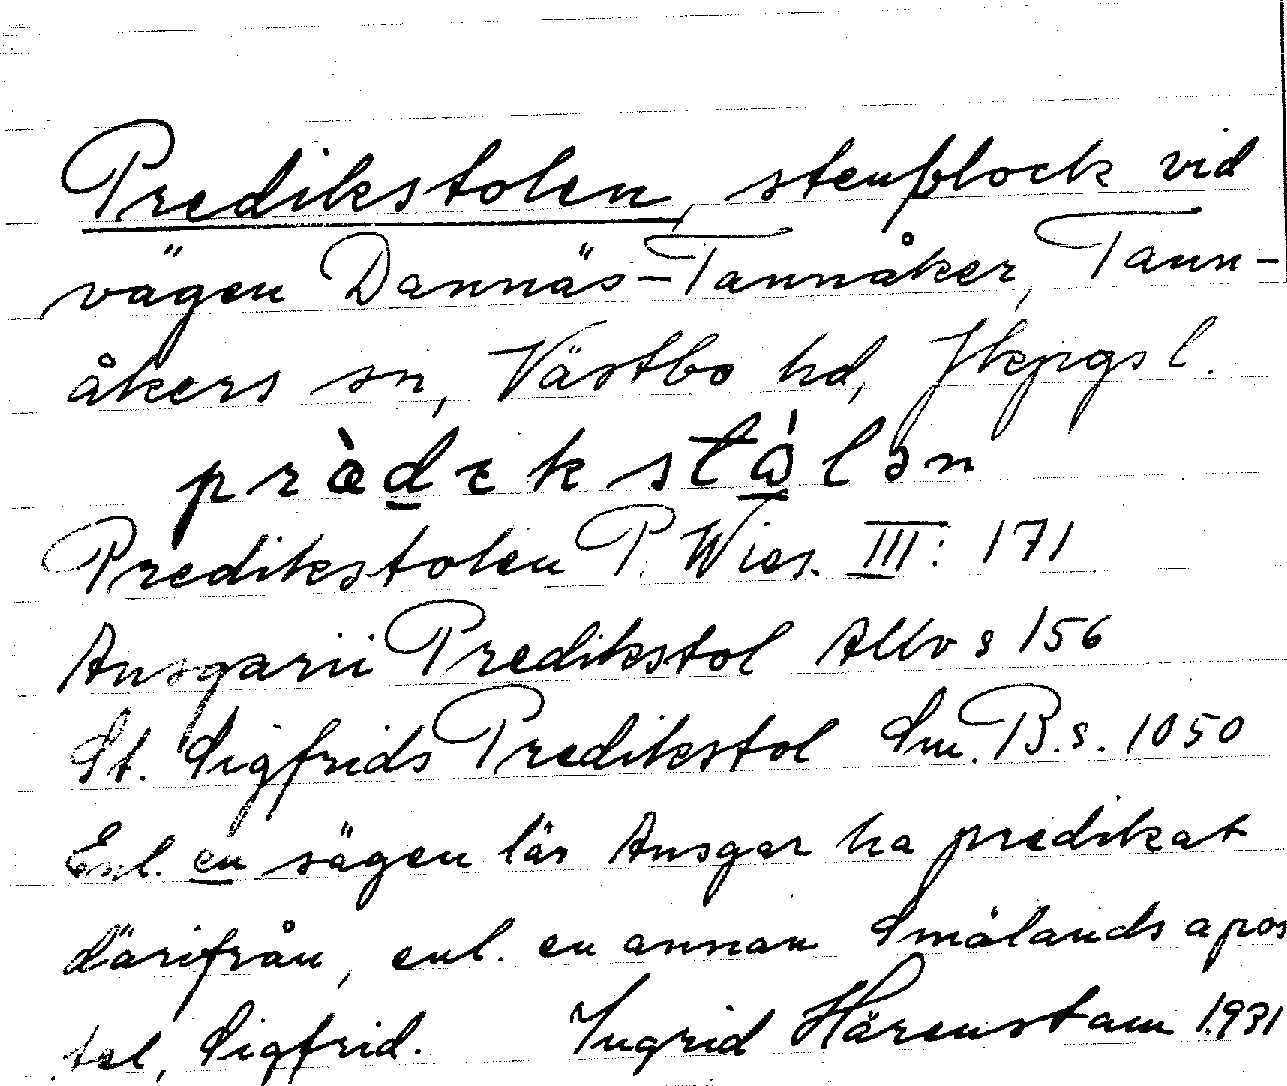 Predikstolen, stenblock vid
vägen Dannäs-Tannåker, Tann-
åkers sn, Västbo hd, Jkpgs l.
Predikstolen P. Wies. III: 171
Ansgarii Predikstol Allvs 156
St. Sigfrids Predikstol Sm. B. s. 1050
Enl. en sägen lär Ansgar ha predikat
därifrån, enl. en annan Smålands apos
tel, Sigfrid. Ingrid Härenstam 1931